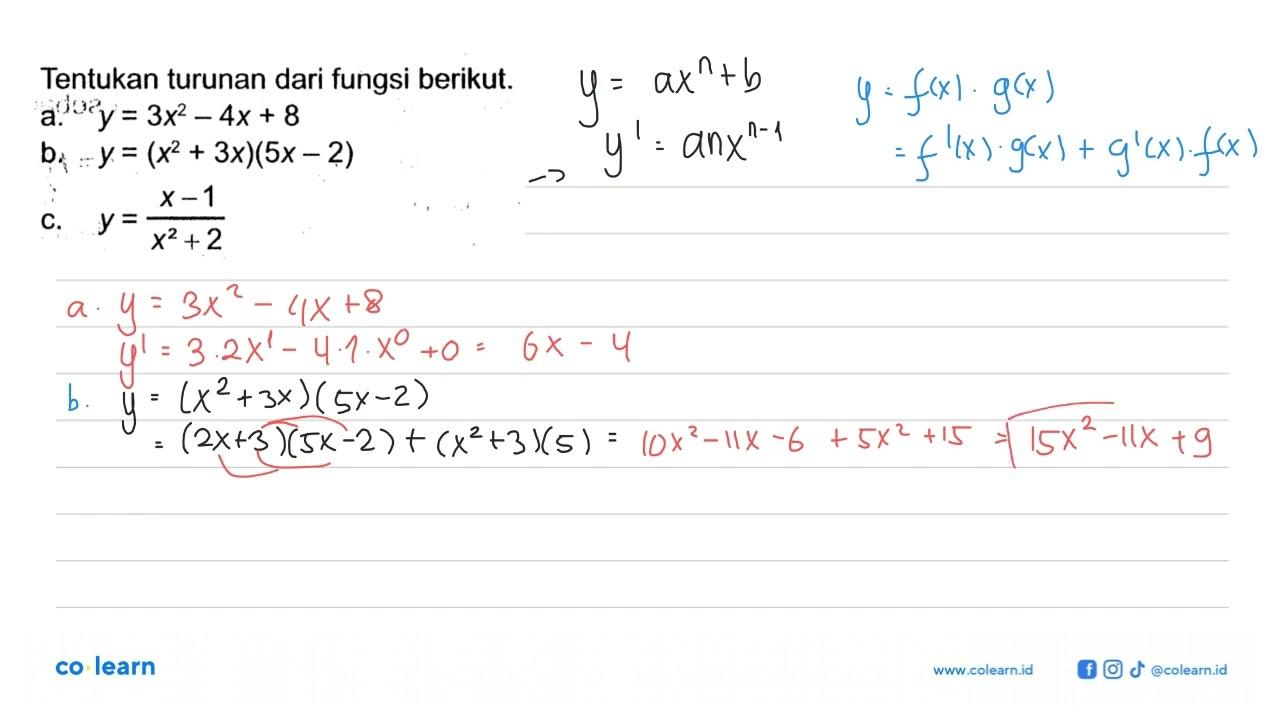 Tentukan turunan dari fungsi berikut.
a. y = 3x² – 4x + 8
b. y = (x² + 3x)(5x – 2)
c. y = x – 1 / x² + 2
y = axⁿ + b
→ y' = anxⁿ⁻¹
y = f(x) · g(x)
= f'(x) · g(x) + g'(x) · f(x)
a. y = 3x² – 4x + 8
y' = 3 · 2x¹ – 4 · 1 · x⁰ + 0 = 6x – 4
b. y = (x² + 3x)(5x – 2)
= (2x+3)(5x–2) + (x²+3)(5) = 10x² – 11x – 6 + 5x² + 15 = 15x² – 11x + 9
co·learn
www.colearn.id @colearn.id